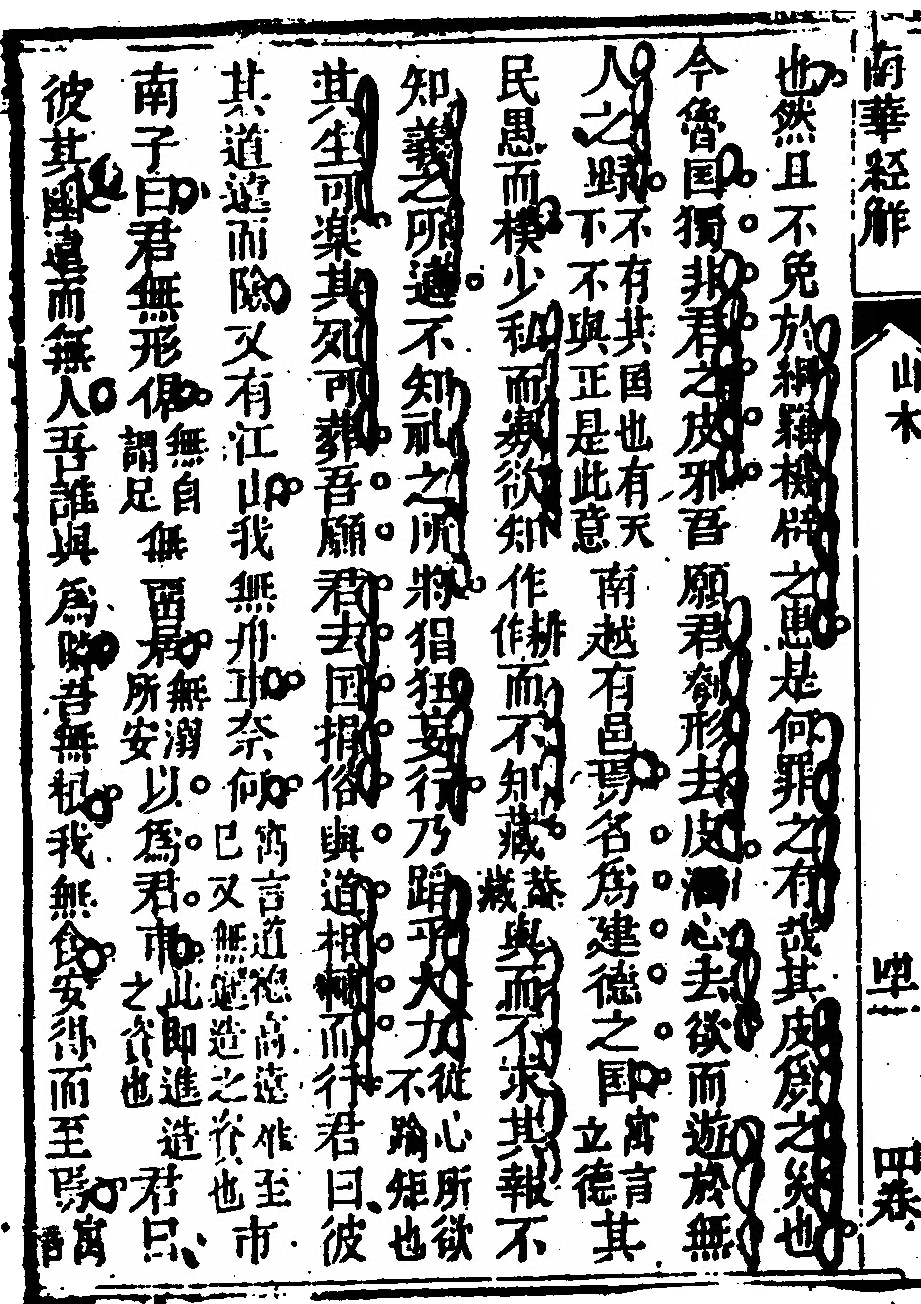 南華經解 山木 四卷
也然且不免於網羅機辟之患是何罪之有哉其皮爲之災也
今魯国獨非君之皮邪吾願君刳形去皮洒心去欲而遊於無
人之野不有其国也有天下不與正是此意南越有邑焉名爲建德之国寓言立德其
民愚而樸少私而寡欲知作耕作而不知藏葢藏與而不求其報不
知義之所適不知礼之所將猖狂妄行乃蹈乎大方從心所欲不踰矩也
其生可楽其死可葬吾願君去国捐俗與道相輔而行君曰彼
其道遠而險又有江山我無舟車奈何寓言道德高遠难至已又無進造之資也市
南子曰君無形倨無自謂足無留居無溺所安以爲君車此即進造之資也君曰
彼其國遠而無人吾誰與爲隣吾無糧我無食安得而至焉寓